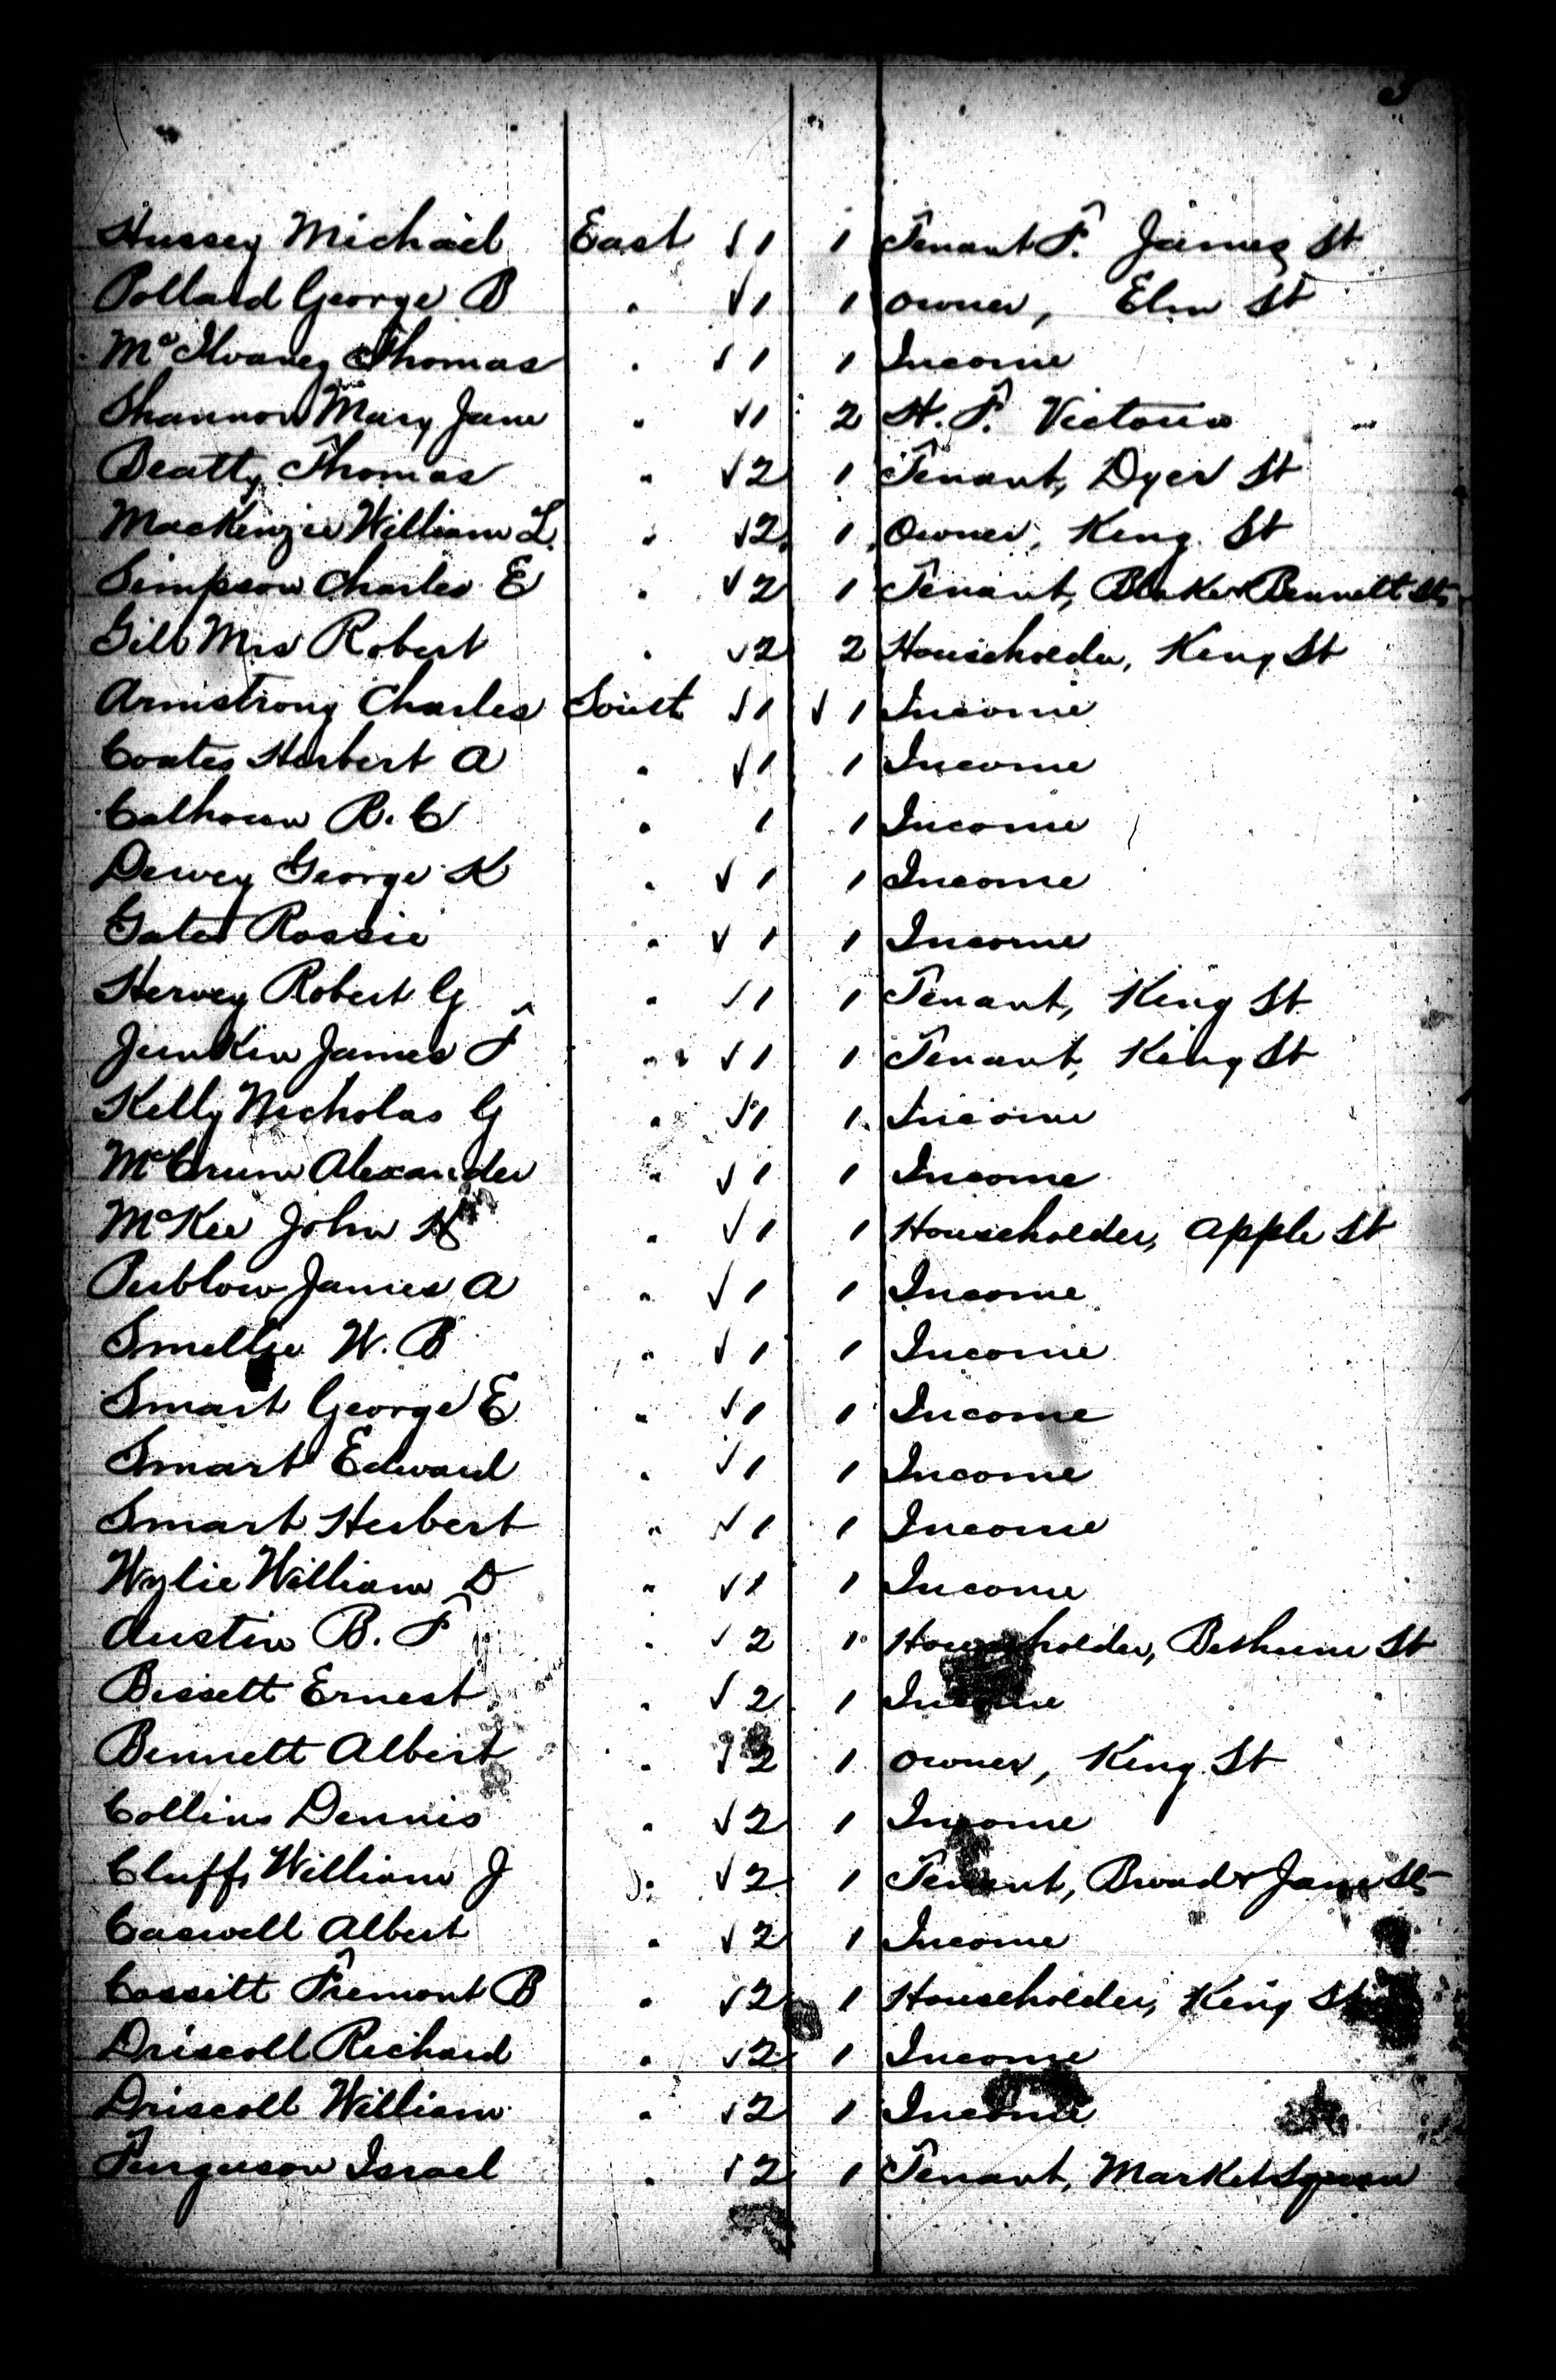 3
Hussey Michael East √1 1 Tenant F. James St
Pollard George B " √1 1 Owner, Elm St
McIlvaney Thomas " √1 1 Income
Shannon Mary Jane " √1 2 H. F. Victoria "
Beatty Thomas " √2 1 Tenant, Dyer St
MacKenzie William L. " √2 1 Owner, King St
Simpson Charles E " √2 1 Tenant, Blake & Bennett Sts
Gill Mrs Robert " √2 2 Householder, King St
Armstrong Charles South √1 √1 Income
Coates Herbert A " √1 1 Income
Calhoun R. C " 1 1 Income
Dewey George K " √1 1 Income
Gates Rossie " √1 1 Income
Hervey Robert G " √1 1 Tenant, King St
Junkin James F " √1 1 Tenant, King St
Kelly Nicholas G " √1 1 Income
McCrum Alexander " √1 1 Income
McKee John H " √1 1 Householder, Apple St
Publow James A " √1 1 Income
Smellie W. B " √1 1 Income
Smart George E " √1 1 Income
Smart Edward " √1 1 Income
Smart Herbert " √1 1 Income
Wylie William D " √1 1 Income
Austin B. F " √2 1 Householder, Bethune St
Bissett Ernest " √2 1 Income
Bennett Albert " √2 1 Owner, King St
Collins Dennis " √2 1 Income
Cluff William J " √2 1 Tenant, Broad & James Sts
Caswell Albert " √2 1 Income
Cossitt Fremont B " √2 1 Householder, King St
Driscoll Richard " √2 1 Income
Driscoll William " √2 1 Income
Ferguson Israel " √2 1 Tenant, Market Square